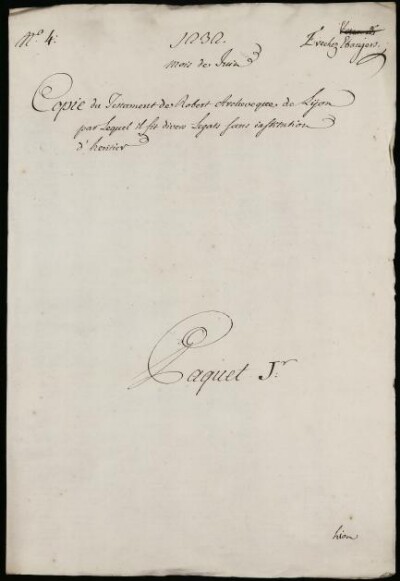 N.º 4.
1232.
Evechez Etrangers.
Mois de Juin
Copie du Testament de Robert Archeveque de Lyon
par lequel il fit divers Legats sans institution
d'heritier
Paquet 1.r
Lion